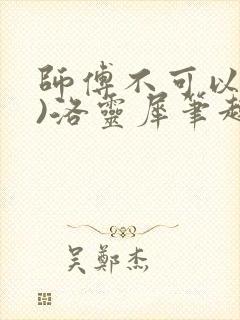 師傅不可以
)洛靈犀筆趣
吳鄭杰